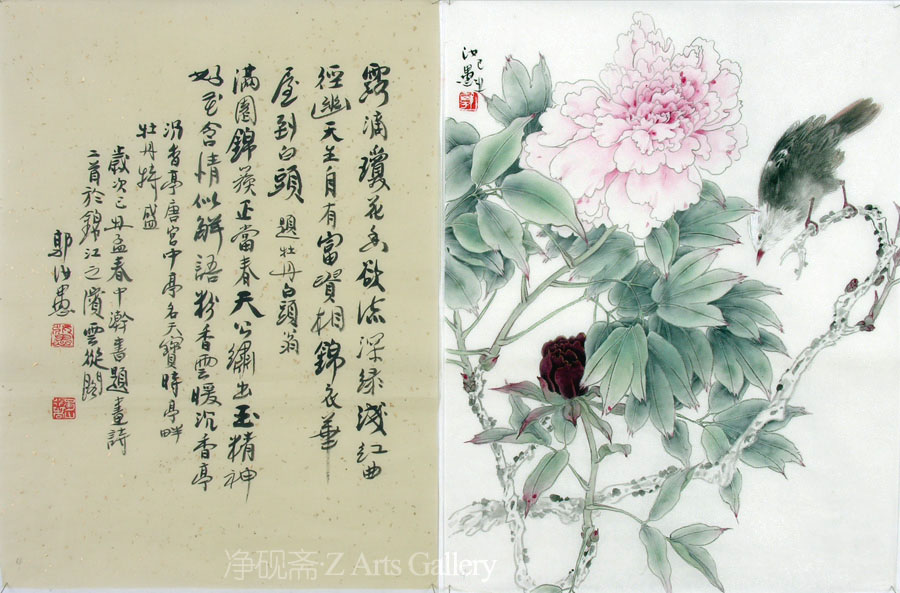 露滴瓊花香欲流深綠淺紅曲
徑幽天生自有富貴相錦衣華
屋到白頭 題牡丹白頭翁
滿園錦簇正當春天公繡出玉精神
好花含情似解語粉香雲暖沉香亭
沉香亭唐宮中亭名天寶時亭畔
牡丹特盛
歲次己丑孟春中瀚書題畫詩
二首於錦江之濱雲從閣
郭汝愚
己丑
汝愚
净砚斋·Z Arts Gallery